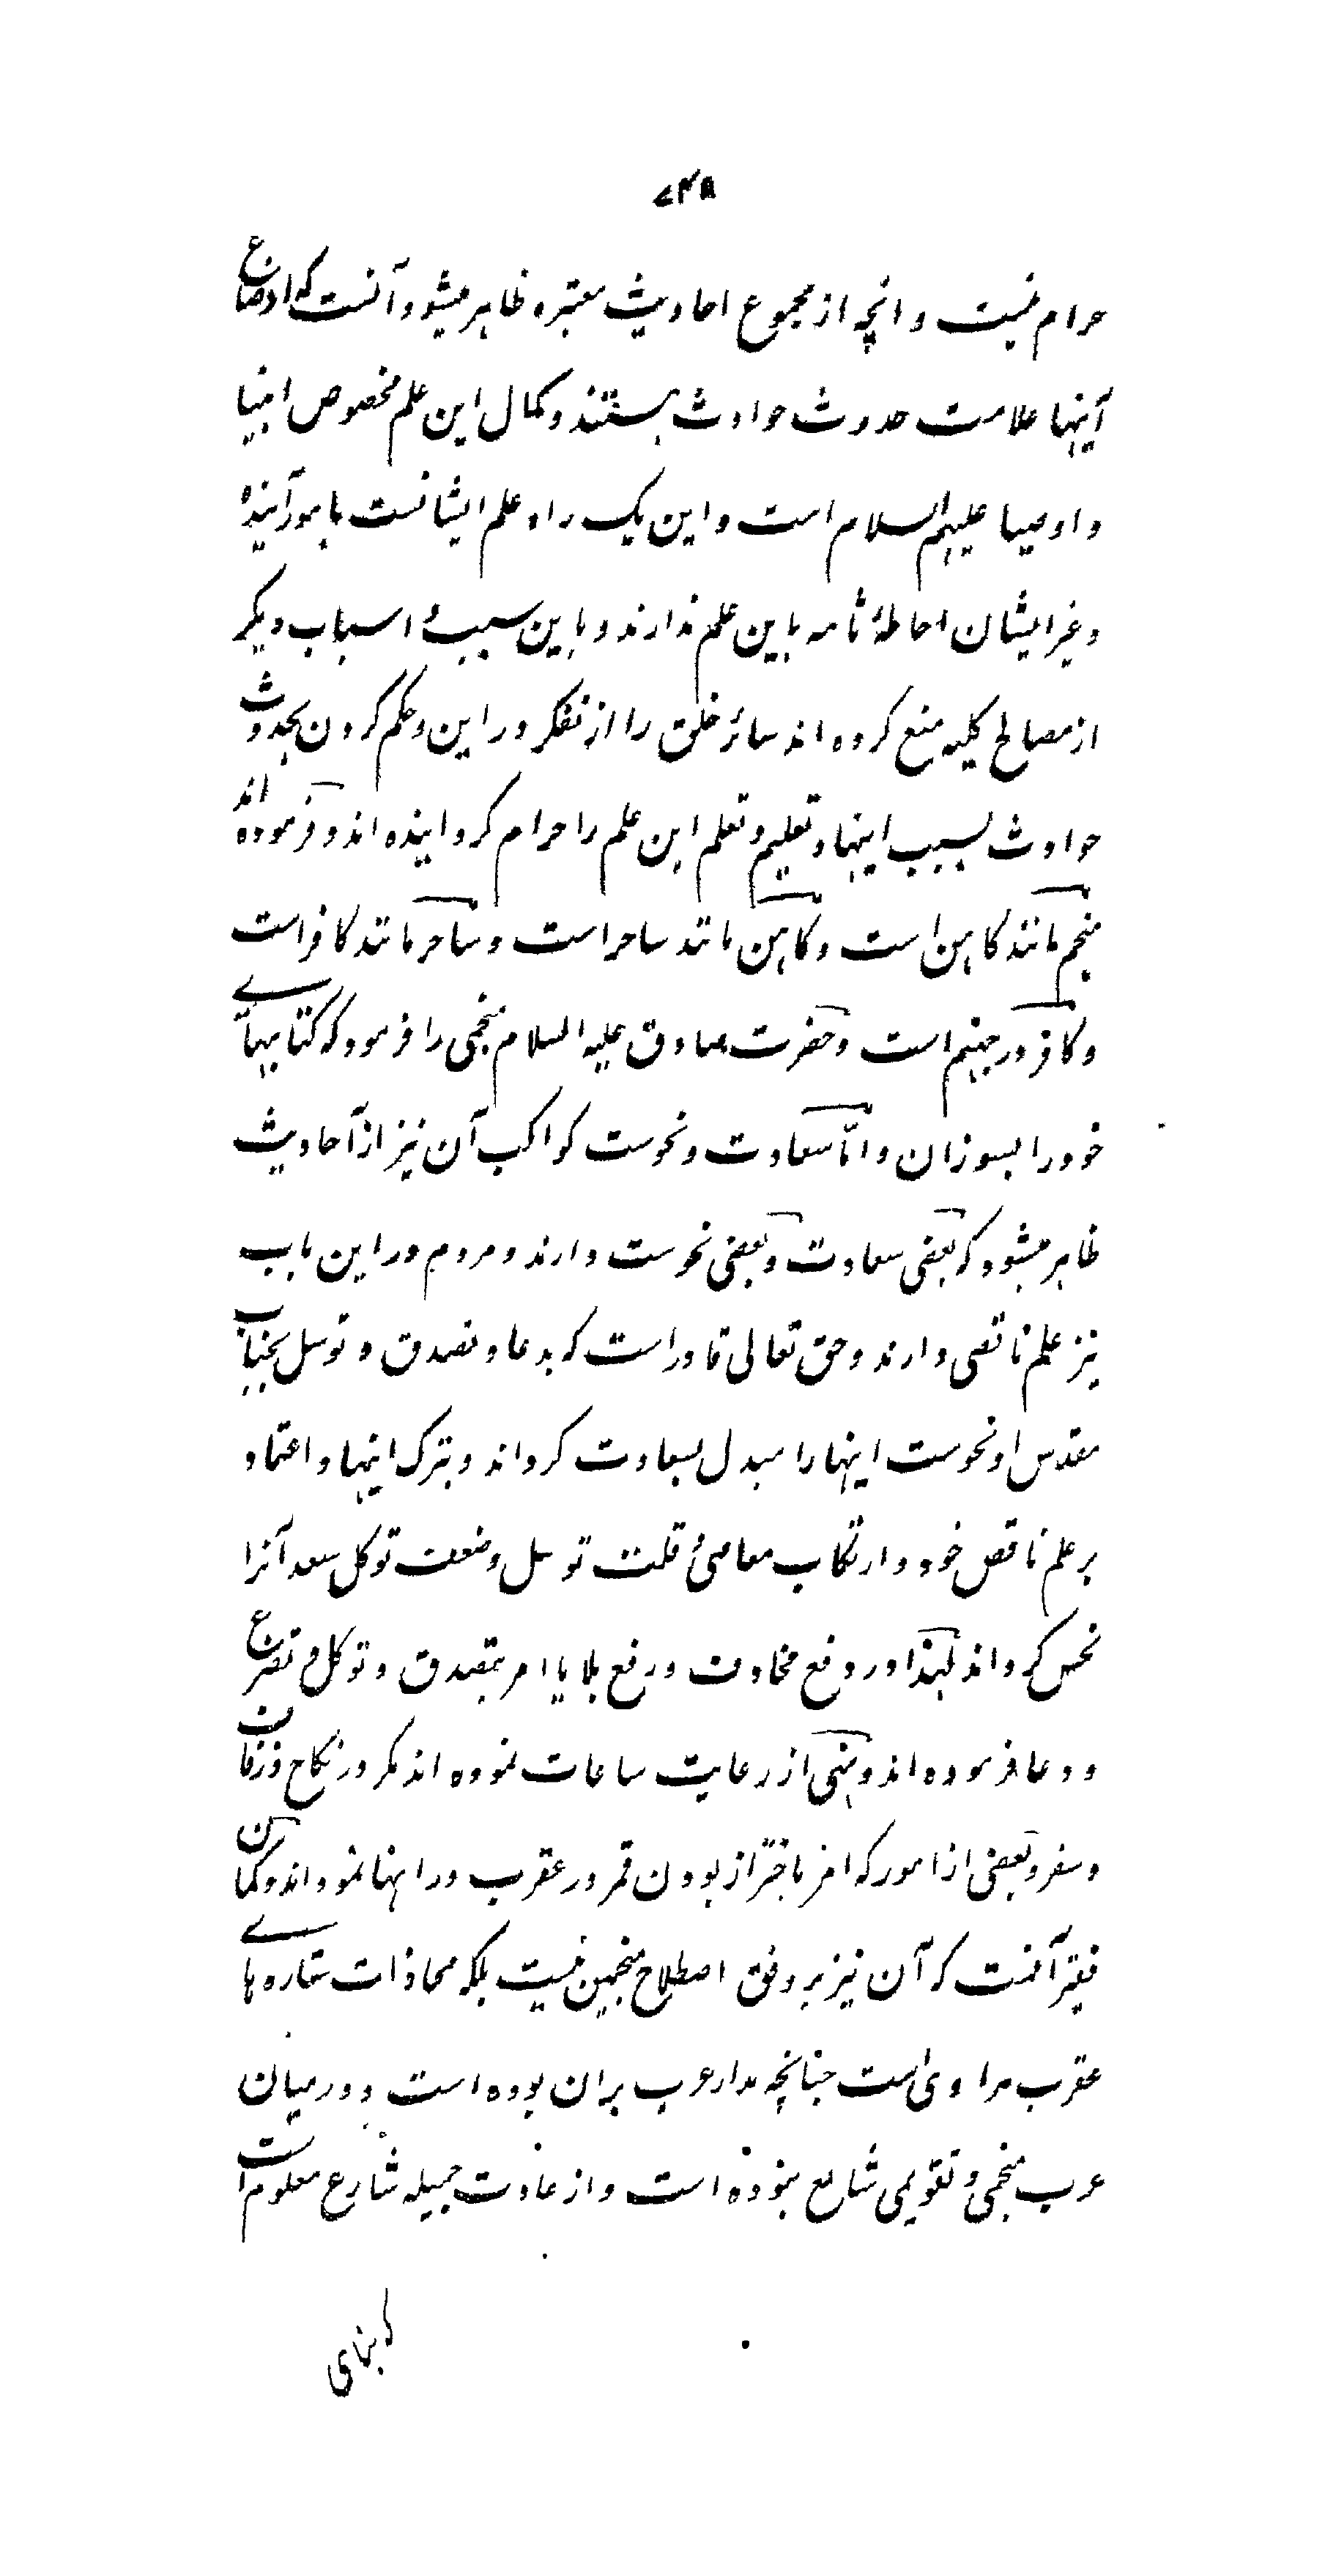 ۲۴۸
حرام نیست و انچه از مجموع احادیث معتبره ظاهر میشود آنست که اوضاع
آینها علامت حدوث حوادث هستند و کمال این علم مخصوص انبیا
و اوصیا علیهم السلام است و این یک راه علم ایشانست بامور آینده
و غیر ایشان احاطهٔ تامه باین علم ندارند و باین سبب و اسباب دیگر
از مصالح کلیه منع کرده اند سائر خلق را از تفکر در این و حکم کردن بحدوث
حوادث بسبب اینها و تعلیم و تعلم این علم را حرام گردانیده اند و فرموده اند
منجم مانند کاهن است و کاهن مانند ساحر است و ساحر مانند کافر است
و کافر در جهنم است و حضرت صادق علیه السلام منجمی را فرمود که کتابهای
خود را بسوزان و امّا سعادت و نحوست کواکب آن نیز از احادیث
ظاهر میشود که بعضی سعادت و بعضی نحوست دارند و مردم در این باب
نیز علم ناقصی دارند و حق تعالی قادر است که بدعا و تصدق و توسل بجناب
مقدس او نحوست اینها را مبدل بسعادت گرداند و بترک اینها و اعتماد
بر علم ناقص خود و ارتکاب معاصی و قلت توسل و ضعف توکل سعد آنرا
نحس گرداند لهذا در دفع مخاوف و رفع بلایا امر بتصدق و توکل و تضرع
و دعا فرموده اند و نهی از رعایت ساعات نموده اند مگر در نکاح و زفاف
و سفر و بعضی از امور که امر باحتراز بودن قمر در عقرب در اینها نموده اند و گمان
فقیر آنست که آن نیز بر وفق اصطلاح منجمین نیست بلکه محاذات ستاره های
عقرب مراد است چنانچه مدار عرب بر ان بوده است و در میان
عرب منجمی و تقویمی شایع نبوده است و از عادت جمیله شارع معلوم است
که بنای